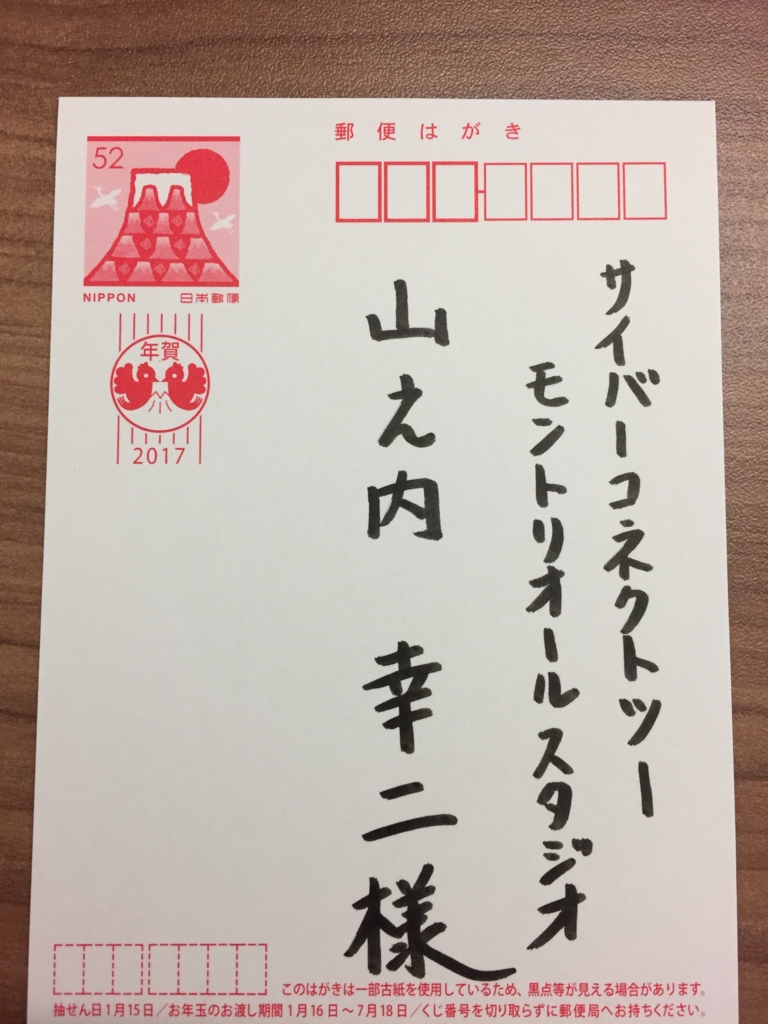 郵便はがき
サイバーコネクトツー
モントリオールスタジオ
山え内 幸二 様
52
NIPPON 日本郵便
年賀
2017
このはがきは一部古紙を使用しているため、黒点等が見える場合があります。
抽せん日1月15日/お年玉のお渡し期間1月16日~7月18日/くじ番号を切り取らずに郵便局へお持ちください。